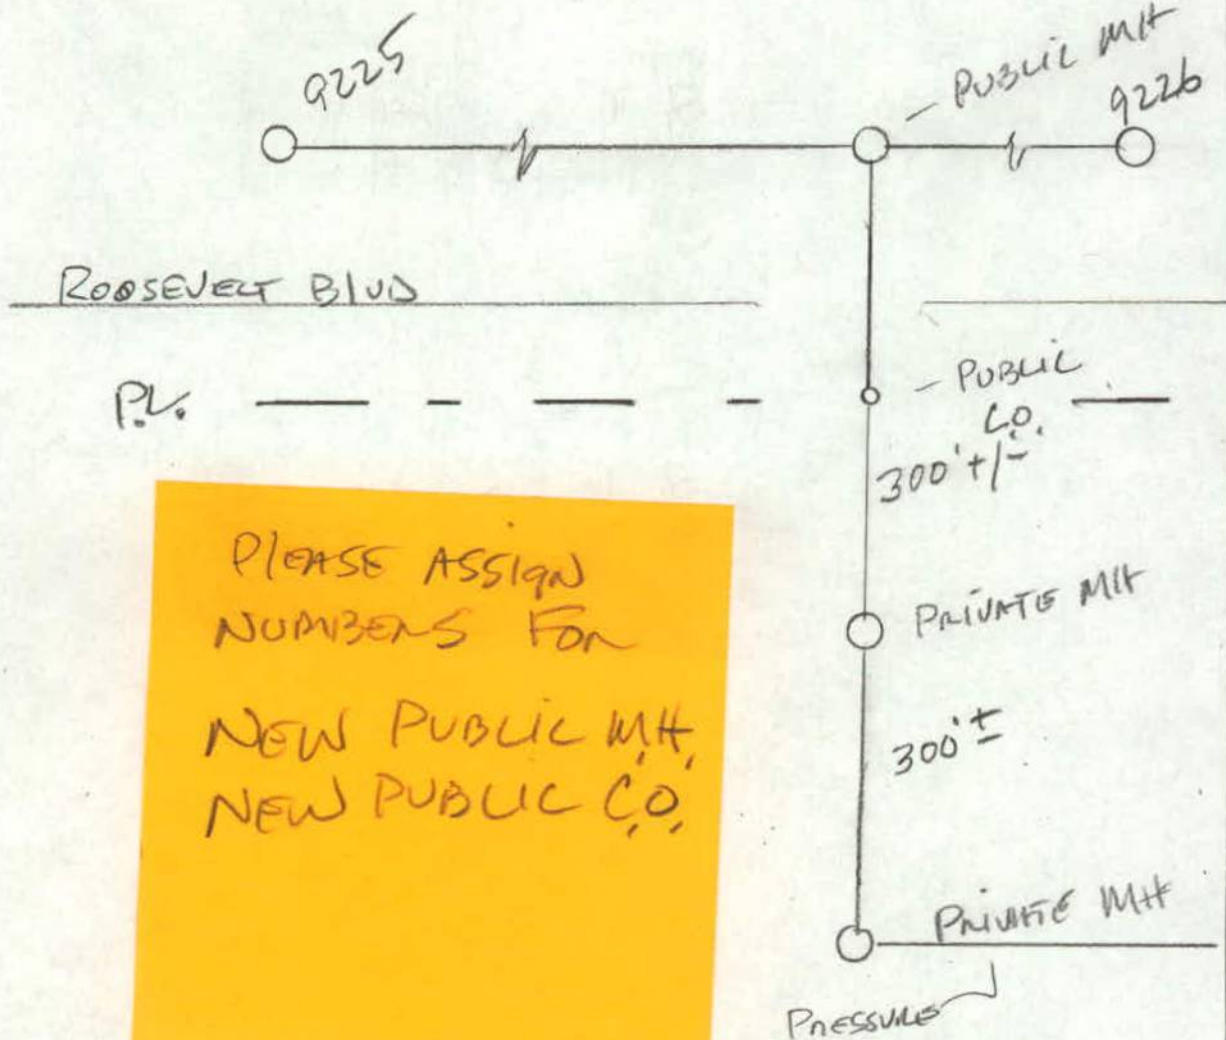 9225
PUBLIC MH
9226
ROOSEVELT BLVD
P.L.
PUBLIC
C.O.
300'+/-
PLEASE ASSIGN
NUMBERS FOR
NEW PUBLIC M.H.
NEW PUBLIC C.O.
PRIVATE MH
300'±
PRIVATE MH
PRESSURE